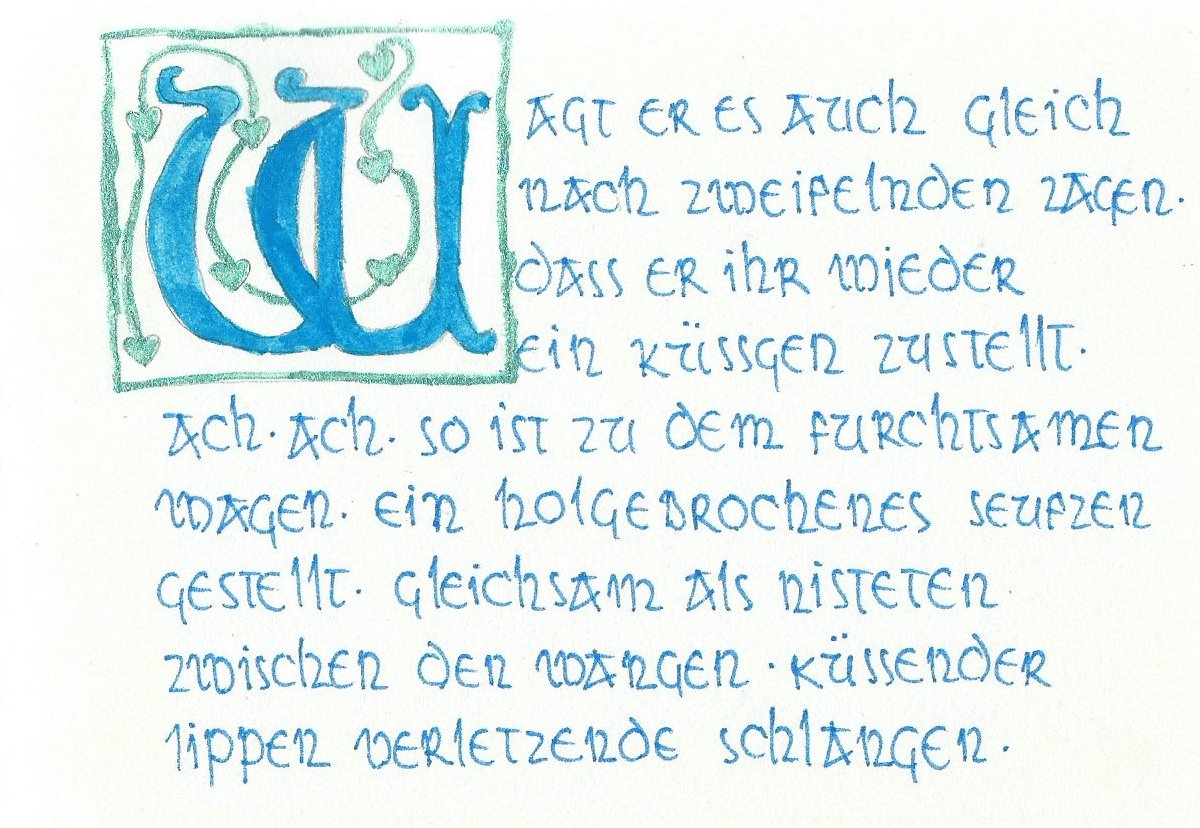 WAGT ER ES AUCH GLEICH
NACH ZWEIFELNDEN ZAGEN.
DASS ER IHR WIEDER
EIN KÜSSGEN ZUSTELLT.
ACH. ACH. SO IST ZU DEM FURCHTSAMEN
WAGEN. EIN HOLGEBROCHENES SEUFZEN
GESTELLT. GLEICHSAM ALS NISTETEN
ZWISCHEN DEN WANGEN . KÜSSENDER
LIPPEN VERLETZENDE SCHLANGEN.